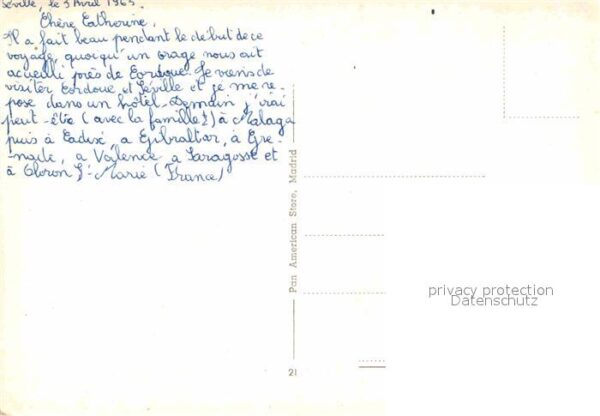 Séville, le 3 Avril 1965.
Chère Catherine,
Il a fait beau pendant le début de ce
voyage, quoiqu'un orage nous ait
accueilli près de Cordoue. Je viens de
visiter Cordoue et Séville et je me re-
pose dans un hôtel. Demain j'irai
peut-être (avec la famille!) à Malaga
puis à Cadix, a Gibraltar, à Gre-
nade, a Valence a Saragosse et
à Oloron Ste Marie (France)
Pan American Store, Madrid
21
privacy protection
Datenschutz